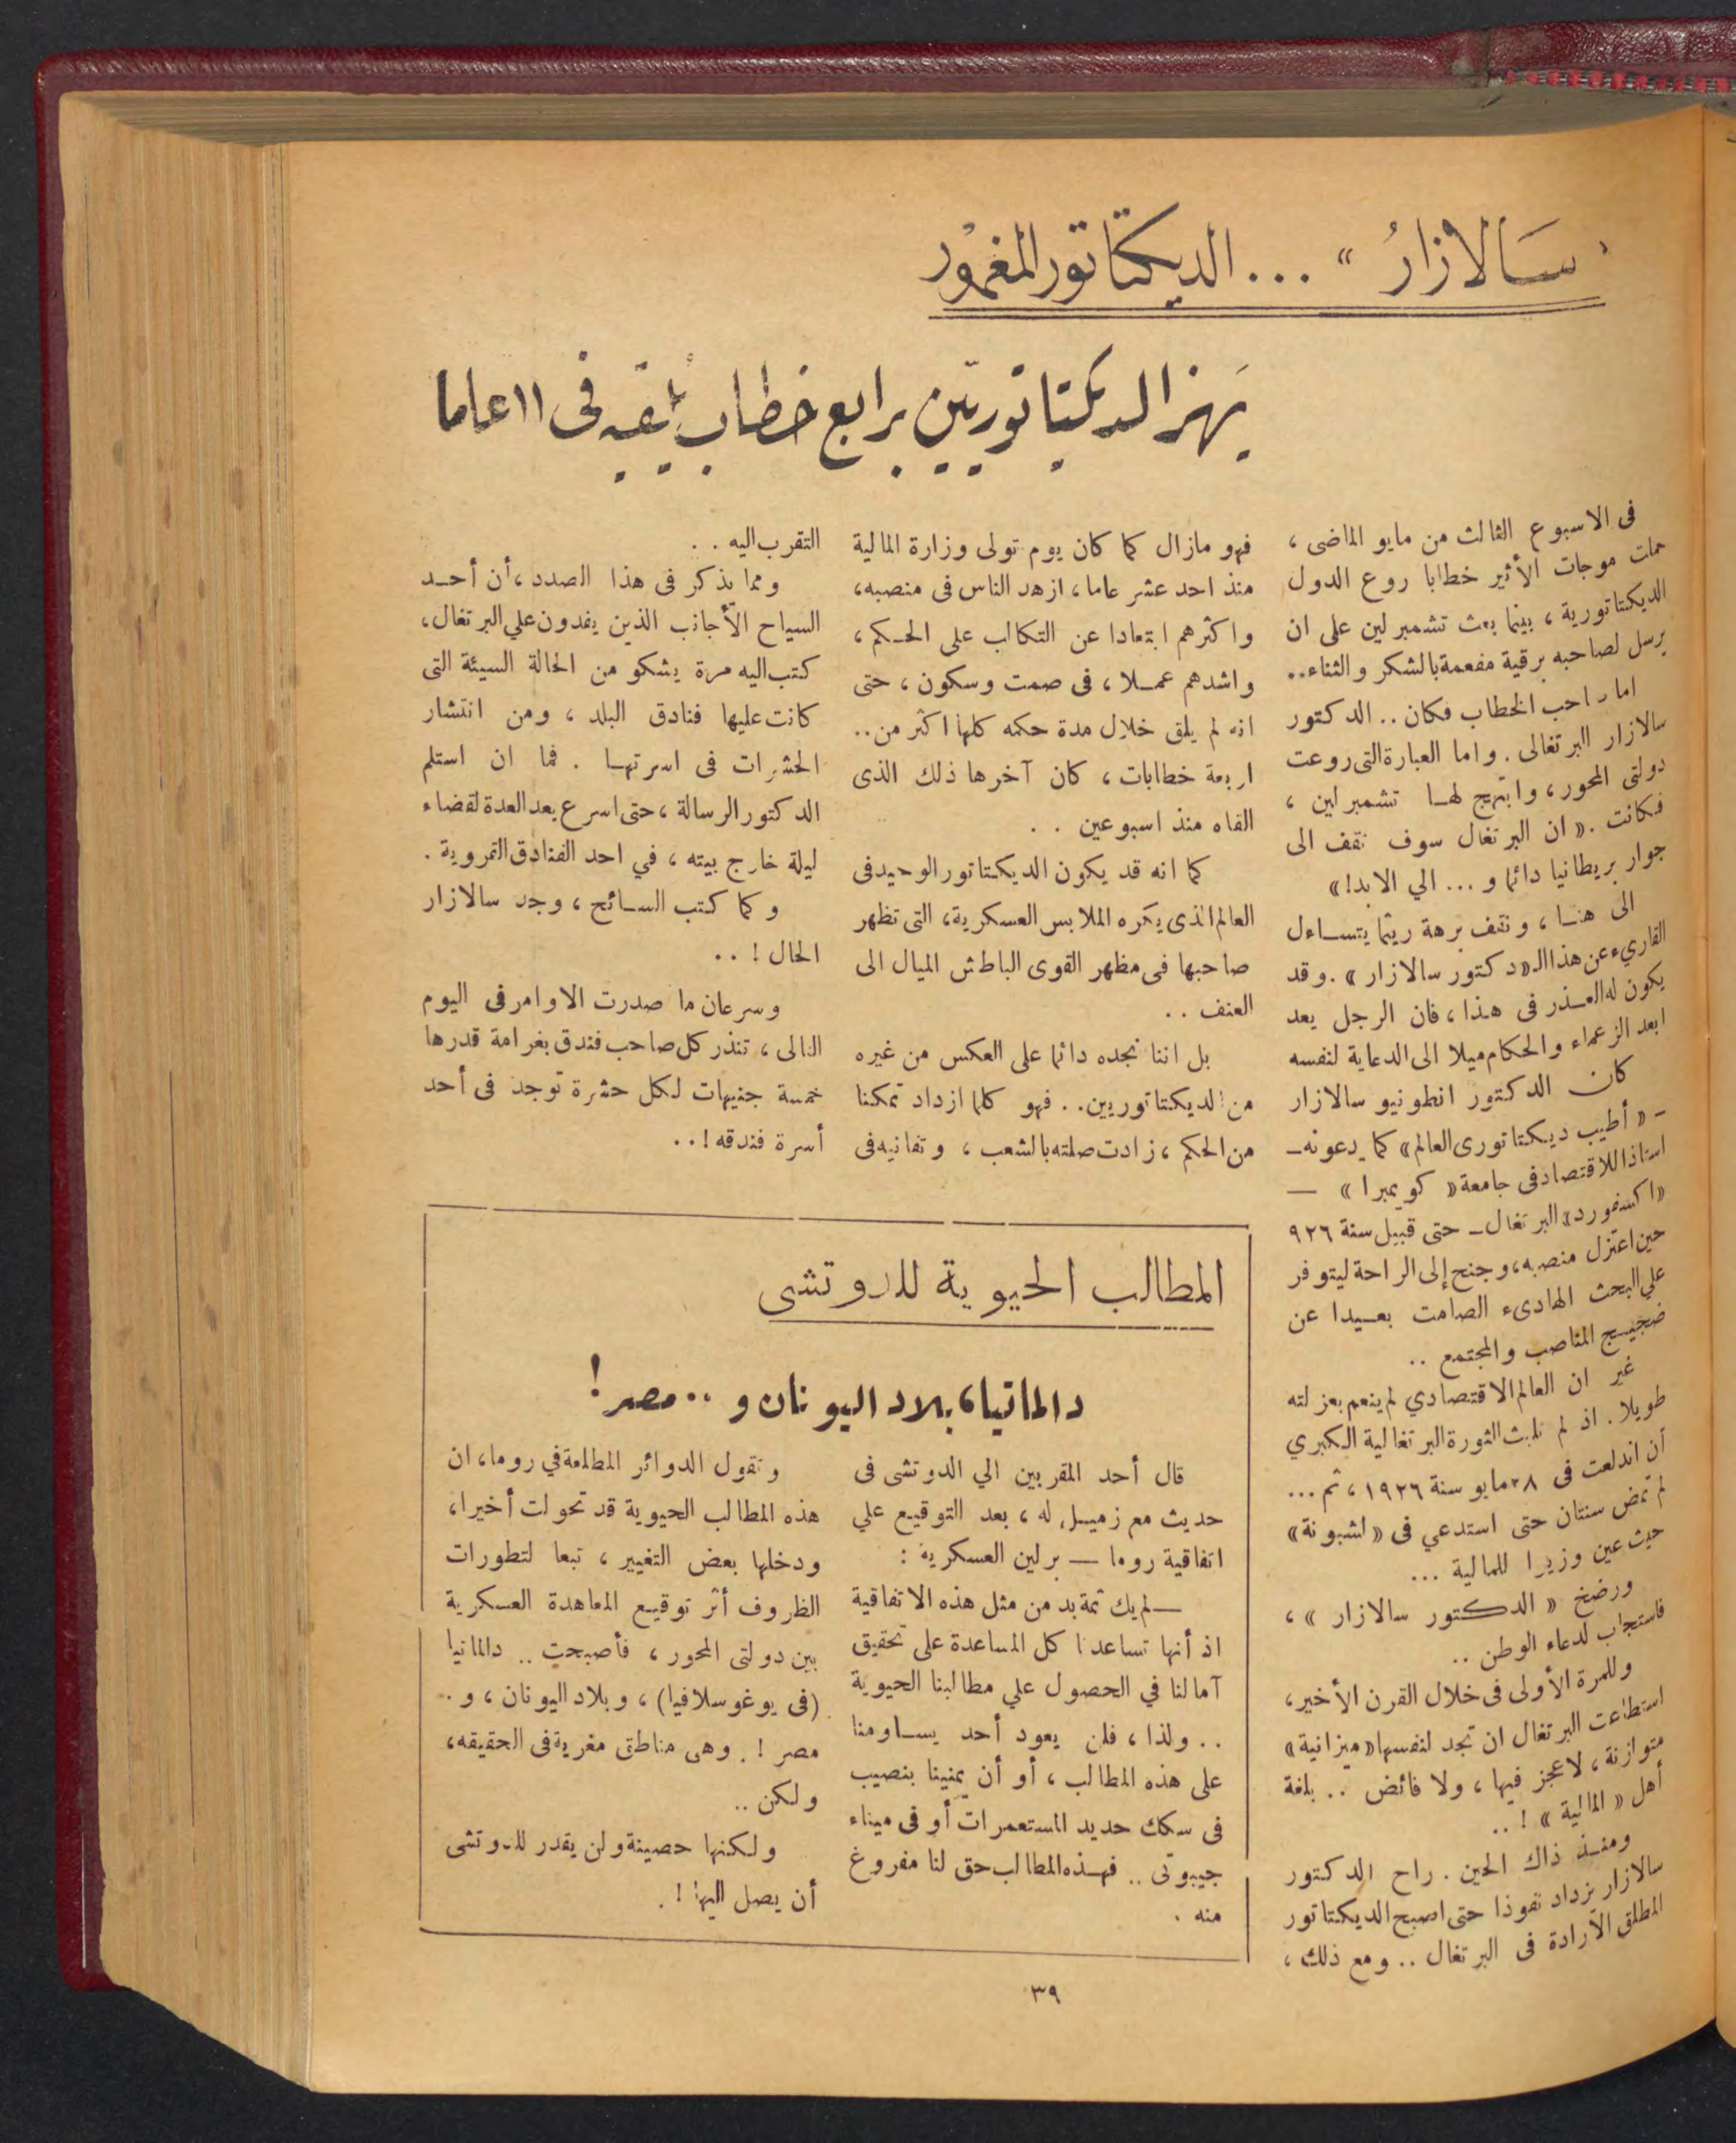 « سَالازارُ » ... الديكتاتور المغمور
يَهز الديكتاتوريّين برابع خطاب يلقيه فى ١١ عاما
فى الاسبوع الثالث من مايو الماضى ،
حملت موجات الأثير خطابا روع الدول
الديكتاتورية ، بينما بعث تشمبرلين على ان
يرسل لصاحبه برقية مفعمة بالشكر والثناء..
اما صاحب الخطاب فكان .. الدكتور
سالازار البرتغالى . واما العبارة التى روعت
دولتى المحور ، وابتهج لهـا تشمبرلين ،
فكانت . « ان البرتغال سوف تقف الى
جوار بريطانيا دائما و ... الي الابد! »
الى هنـا ، ونقف برهة ريثما يتسـاءل
القاريء عن هذا الـ « دكتور سالازار » . وقد
يكون له العـذر فى هذا ، فان الرجل يعد
ابعد الزعماء والحكام ميلا الى الدعاية لنفسه
كان الدكتور انطونيو سالازار
ـ « أطيب ديكتاتورى العالم » كما يدعونه ـ
استاذا للاقتصاد فى جامعة « كويمبرا » —
« اكسفورد » البرتغال ـ حتى قبيل سنة ٩٢٦
حين اعتزل منصبه ، وجنح إلى الراحة ليتوفر
علي البحث الهادىء الصامت بعـيدا عن
ضجيـج المناصب والمجتمع ..
غير ان العالم الاقتصادي لم ينعم بعزلته
طويلا . اذ لم تلبث الثورة البرتغالية الكبري
أن اندلعت فى ٢٨ مايو سنة ١٩٢٦ ، ثم ...
لم تمض سنتان حتى استدعي فى « لشبونة »
حيث عين وزيرا للمالية ...
ورضخ « الدكتور سالازار » ،
فاستجاب لدعاء الوطن ..
وللمرة الأولى فى خلال القرن الأخير،
استطاعت البرتغال ان تجد لنفسها « ميزانية »
متوازنة ، لا عجز فيها ، ولا فائض .. بلغة
أهل « المالية » ! ..
ومنـذ ذاك الحين . راح الدكتور
سالازار يزداد نفوذا حتى اصبح الديكتاتور
المطلق الارادة فى البرتغال .. ومع ذلك ،
فهو مازال كما كان يوم تولى وزارة المالية
منذ احد عشر عاما ، ازهد الناس فى منصبه،
واكثرهم ابتعادا عن التكالب على الحـكم ،
واشدهم عمـلا ، فى صمت وسكون ، حتى
انه لم يلق خلال مدة حكمه كلها اكثر من..
اربعة خطابات ، كان آخرها ذلك الذى
القاه منذ اسبوعين . .
كما انه قد يكون الديكتاتور الوحيد فى
العالم الذى يكره الملابس العسكرية، التى تظهر
صاحبها فى مظهر القوى الباطش الميال الى
العنف ..
بل اننا نجده دائما على العكس من غيره
من الديكتاتوريين.. فهو كلما ازداد تمكنا
من الحكم ، زادت صلته بالشعب ، وتفانيه فى
التقرب اليه . .
ومما يذكر فى هذا الصدد ، أن أحـد
السياح الأجانب الذين يفدون علي البرتغال،
كتب اليه مرة يشكو من الحالة السيئة التى
كانت عليها فنادق البلد ، ومن انتشار
الحشرات فى اسرتهـا . فما ان استلم
الدكتور الرسالة ، حتى اسرع يعد العدة لقضاء
ليلة خارج بيته ، في احد الفنادق القروية .
وكما كتب السـائح ، وجد سالازار
الحال ! ..
وسرعان ما صدرت الاوامر فى اليوم
التالى ، تنذر كل صاحب فندق بغرامة قدرها
خمسة جنيهات لكل حشرة توجد فى أحد
أسرة فندقه ! ..
المطالب الحيوية للدوتشى
دالماتيا، بلاد اليونان و ٠٠ مصر !
قال أحد المقربين الي الدوتشى فى
حديث مع زميـل له ، بعد التوقيع علي
اتفاقية روما — برلين العسكرية :
— لم يك ثمة بد من مثل هذه الاتفاقية
اذ أنها تساعدنا كل المساعدة على تحقيق
آمالنا في الحصول علي مطالبنا الحيوية
. . ولذا ، فلن يعود أحد يسـاومنا
على هذه المطالب ، أو أن يمنينا بنصيب
فى سكك حديد المستعمرات أو فى ميناء
جيبوتى .. فهـذه المطالب حق لنا مفروغ
منه .
وتقول الدوائر المطلعة في روما، ان
هذه المطالب الحيوية قد تحولت أخيرا،
ودخلها بعض التغيير ، تبعا لتطورات
الظروف أثر توقيـع المعاهدة العسكرية
بين دولتى المحور ، فأصبحت .. دالماتيا
(فى يوغوسلافيا) ، وبلاد اليونان ، و .
مصر ! . وهى مناطق مغرية فى الحقيقه،
ولكن ..
ولكنها حصينة ولن يقدر للدوتشى
أن يصل اليها ! .
٣٩